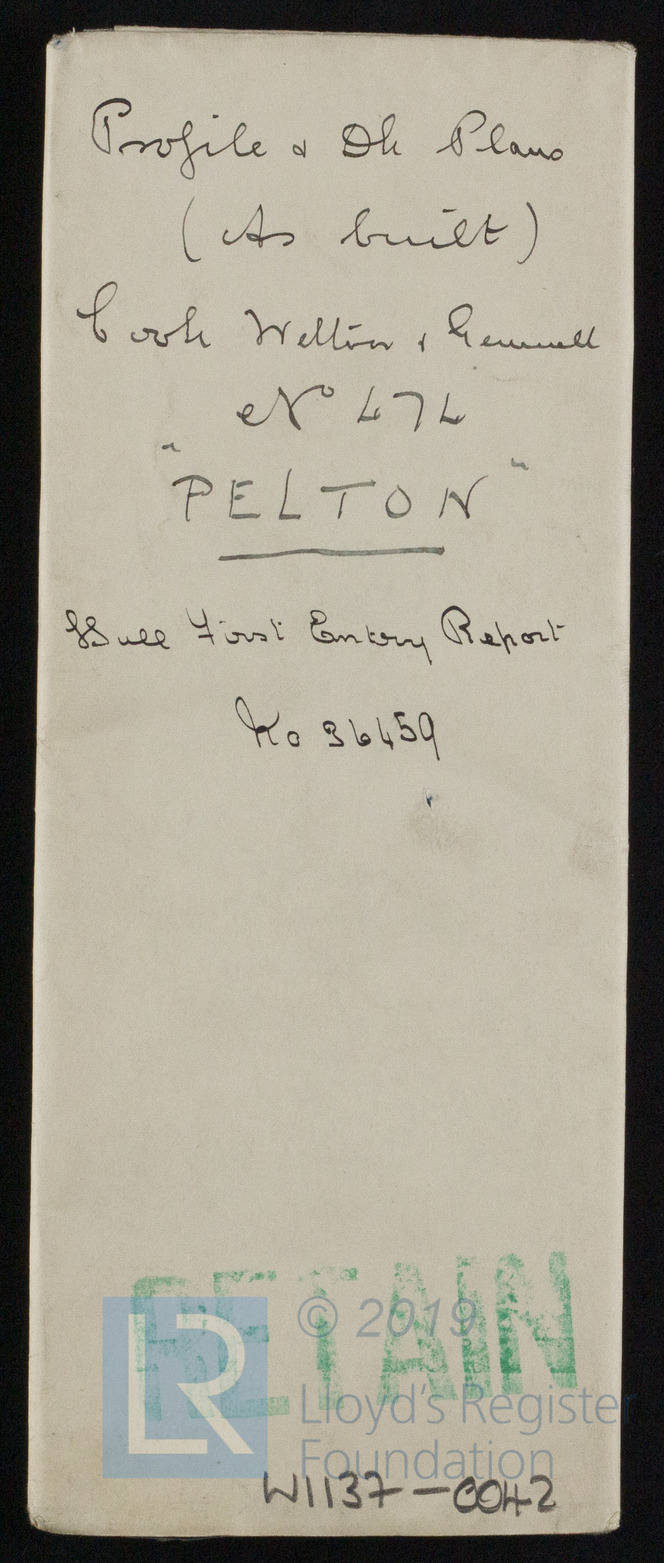 Profile & Dk Plans
(As built)
Cook Welton & Gemmell
No 474
"PELTON"
Hull First Entry Report
No 36459
RETAIN
LR
© 2019
Lloyd's Register
Foundation
W1137-0042